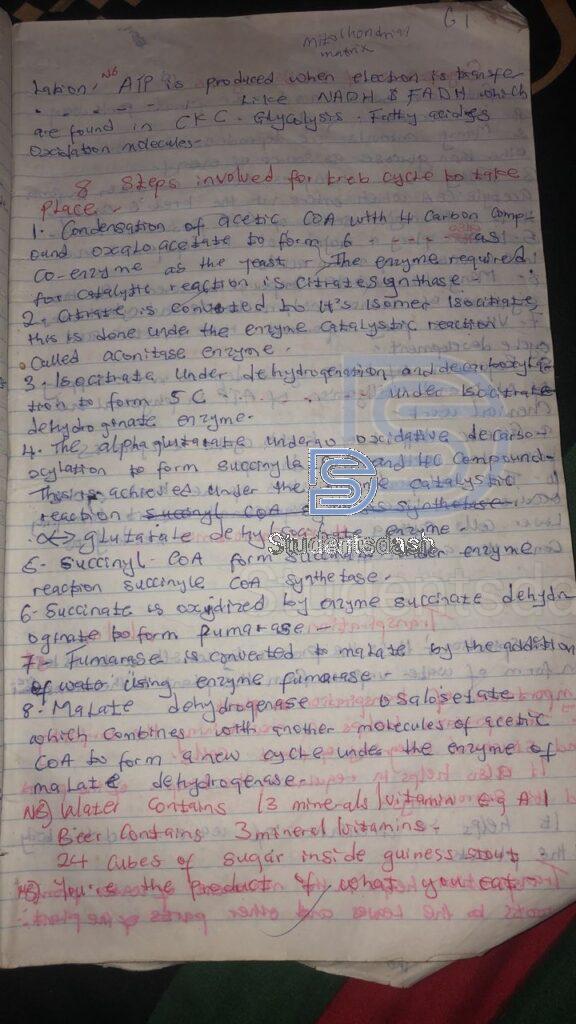 G1
mitochondrial
matrix
lation. NB ATP is produced when electron is transfe
Like NADH & FADH which
are found in CKC. Glycolysis. Fatty acid
Oxidation molecules.
8 Steps involved for kreb cycle to take
Place.
1. Condensation of acetic COA with 4 Carbon Comp-
ound oxaloacetate to form 6 as
Co-enzyme as the yeast. The enzyme required
for catalystic reaction is citrate synthase.
2. Citrate is converted to it's isomer isocitrate,
this is done under the enzyme catalystic reaction
Called aconitase enzyme.
3. Isocitrate under dehydrogenation and decarboxyla-
tion to form 5C under Isocitrate
dehydroginate enzyme.
4. The alpha glutarate undergo oxidative decarbo-
oxylation to form succinyl and 4C Compound.
This is achieved under the catalystic
reaction succinyl COA synthetase
glutarate enzyme.
5. Succinyl-COA form under enzyme
reaction succinyle COA synthetase.
6. Succinate is oxydized by enzyme succinate dehydr
oginate to form fumarase
7- Fumarase is converted to malate by the addition
of water using enzyme fumarase.
8. Malate dehydrogenase osaloSetate
which combines with another molecules of acetic
COA to form a new cycle under the enzyme of
malate dehydrogenase.
NB) Water contains 13 minerals/vitamin e.g A1
Beer contains 3 mineral/vitamins.
24 cubes of sugar inside guiness stout
NB) You is the product of what you eat.
Studentsdash